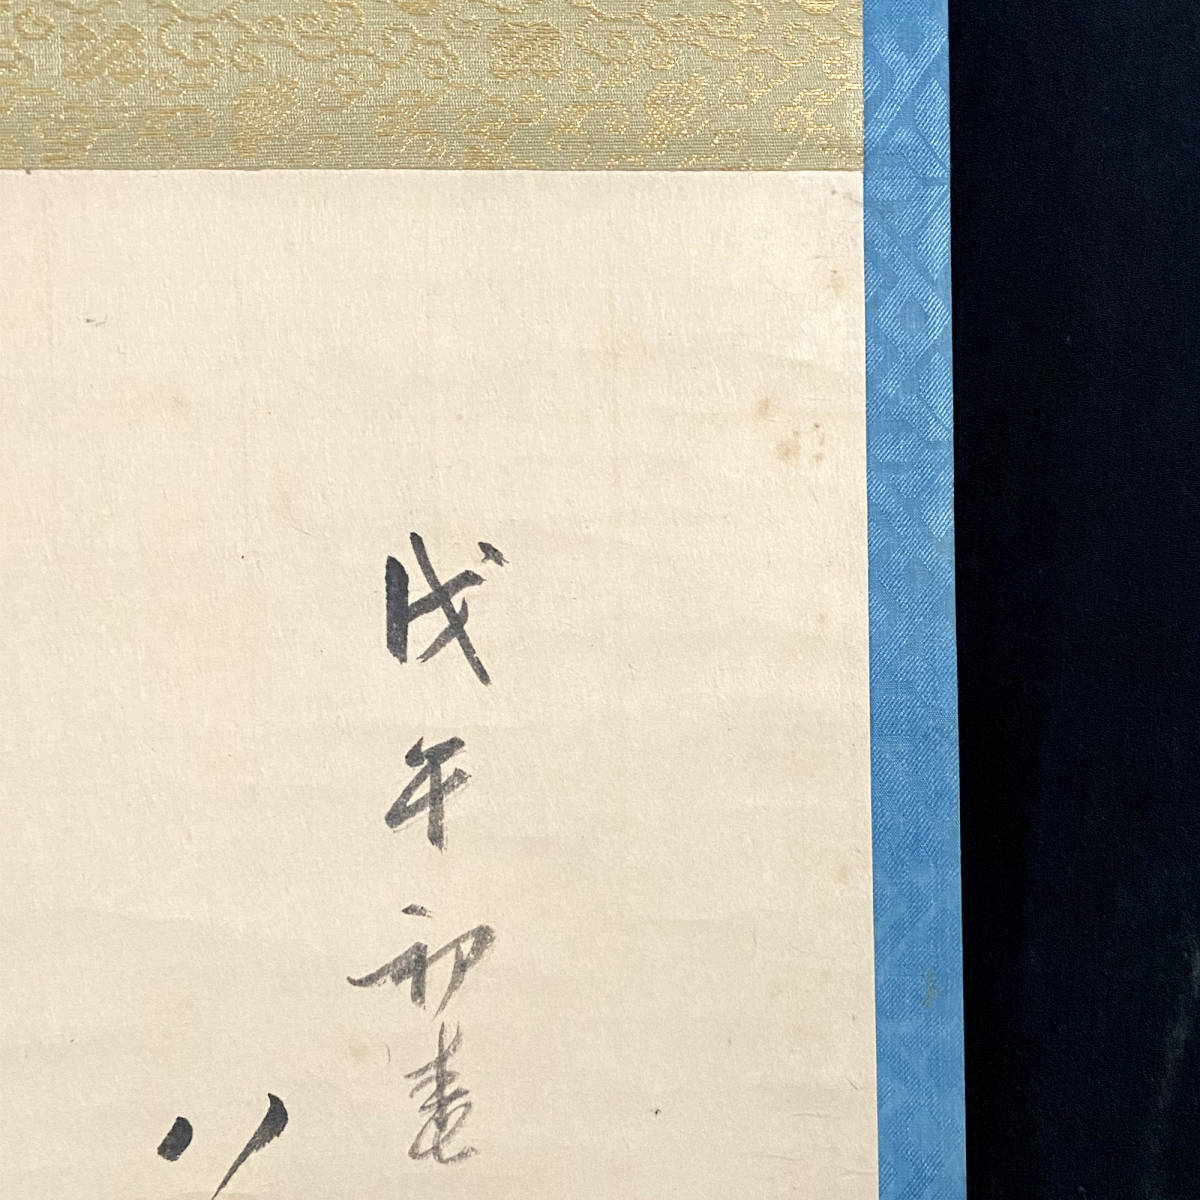 戊午初春